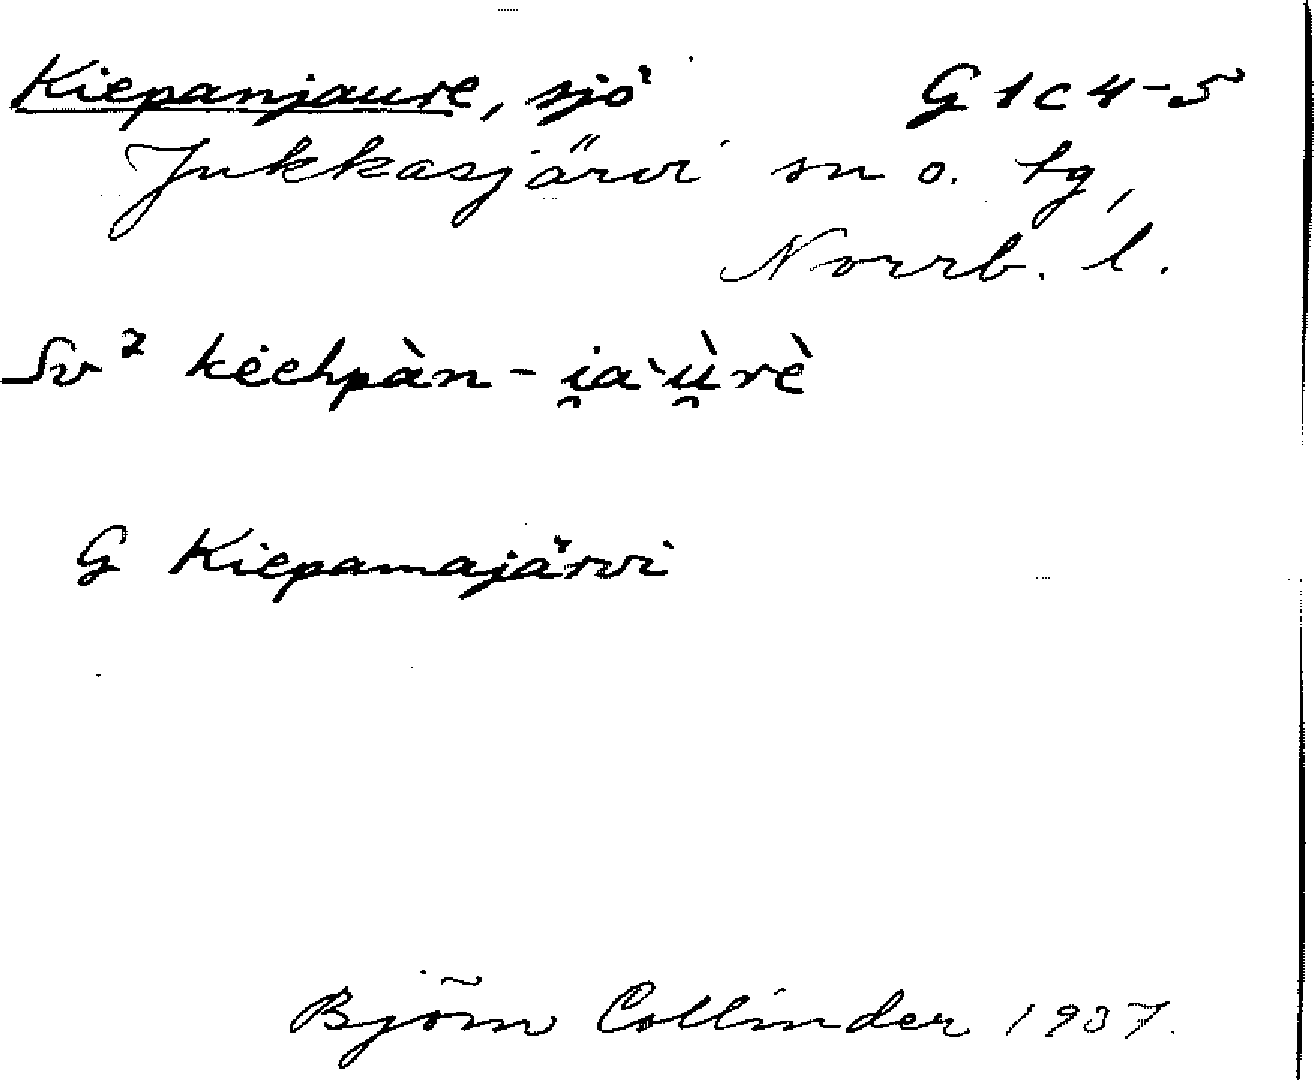 Kiepanjaure, sjö G 1 c 4-5
Jukkasjärvi sn o. tg,
Norrb. l.
Sv² kèehpàn - i̯a`ù̯rè
G Kiepamajärvi
Björn Collinder 1937.